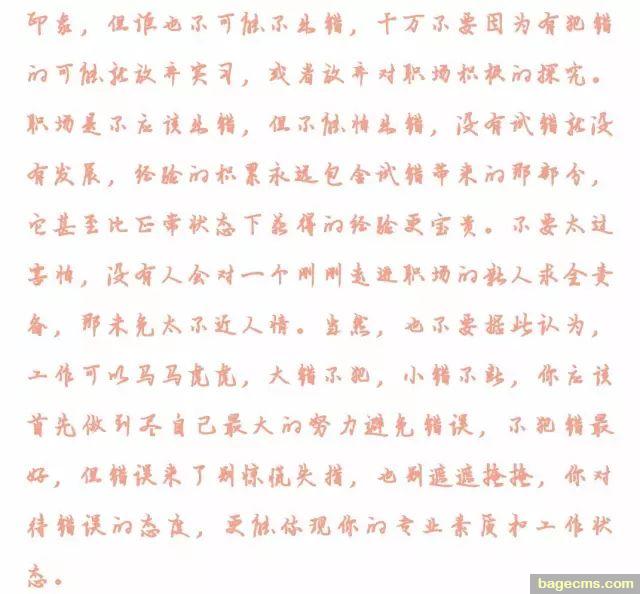 印象，但谁也不可能不出错，千万不要因为有犯错
的可能就放弃实习，或者放弃对职场积极的探究。
职场是不应该出错，但不能怕出错，没有试错就没
有发展，经验的积累永远包含试错带来的那部分，
它甚至比正常状态下获得的经验更宝贵。不要太过
害怕，没有人会对一个刚刚走进职场的新人求全责
备，那未免太不近人情。当然，也不要据此认为，
工作可以马马虎虎，大错不犯，小错不断，你应该
首先做到尽自己最大的努力避免错误，不犯错最
好，但错误来了别惊慌失措，也别遮遮掩掩，你对
待错误的态度，更能体现你的专业素质和工作状
态。
bagecms.com